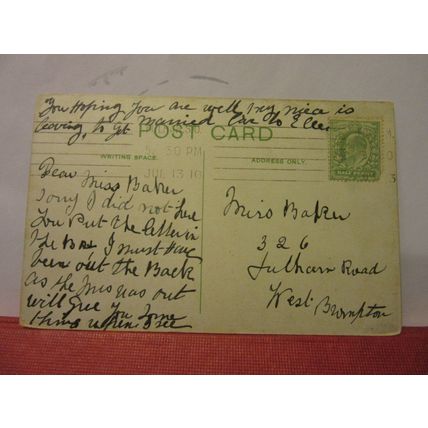 You Hoping You are well my niece is
leaving, to get married love to Ellen
POST CARD
WRITING SPACE.
ADDRESS ONLY.
30 PM
JUL 13 10
Dear Miss Baker
sorry I did not here
You Put the letter in
the Box I must have
been out the Back
as the Miss was out
will give you some
thing when I see
Miss Baker
326
Fulham Road
West Brompton
HALF PENNY